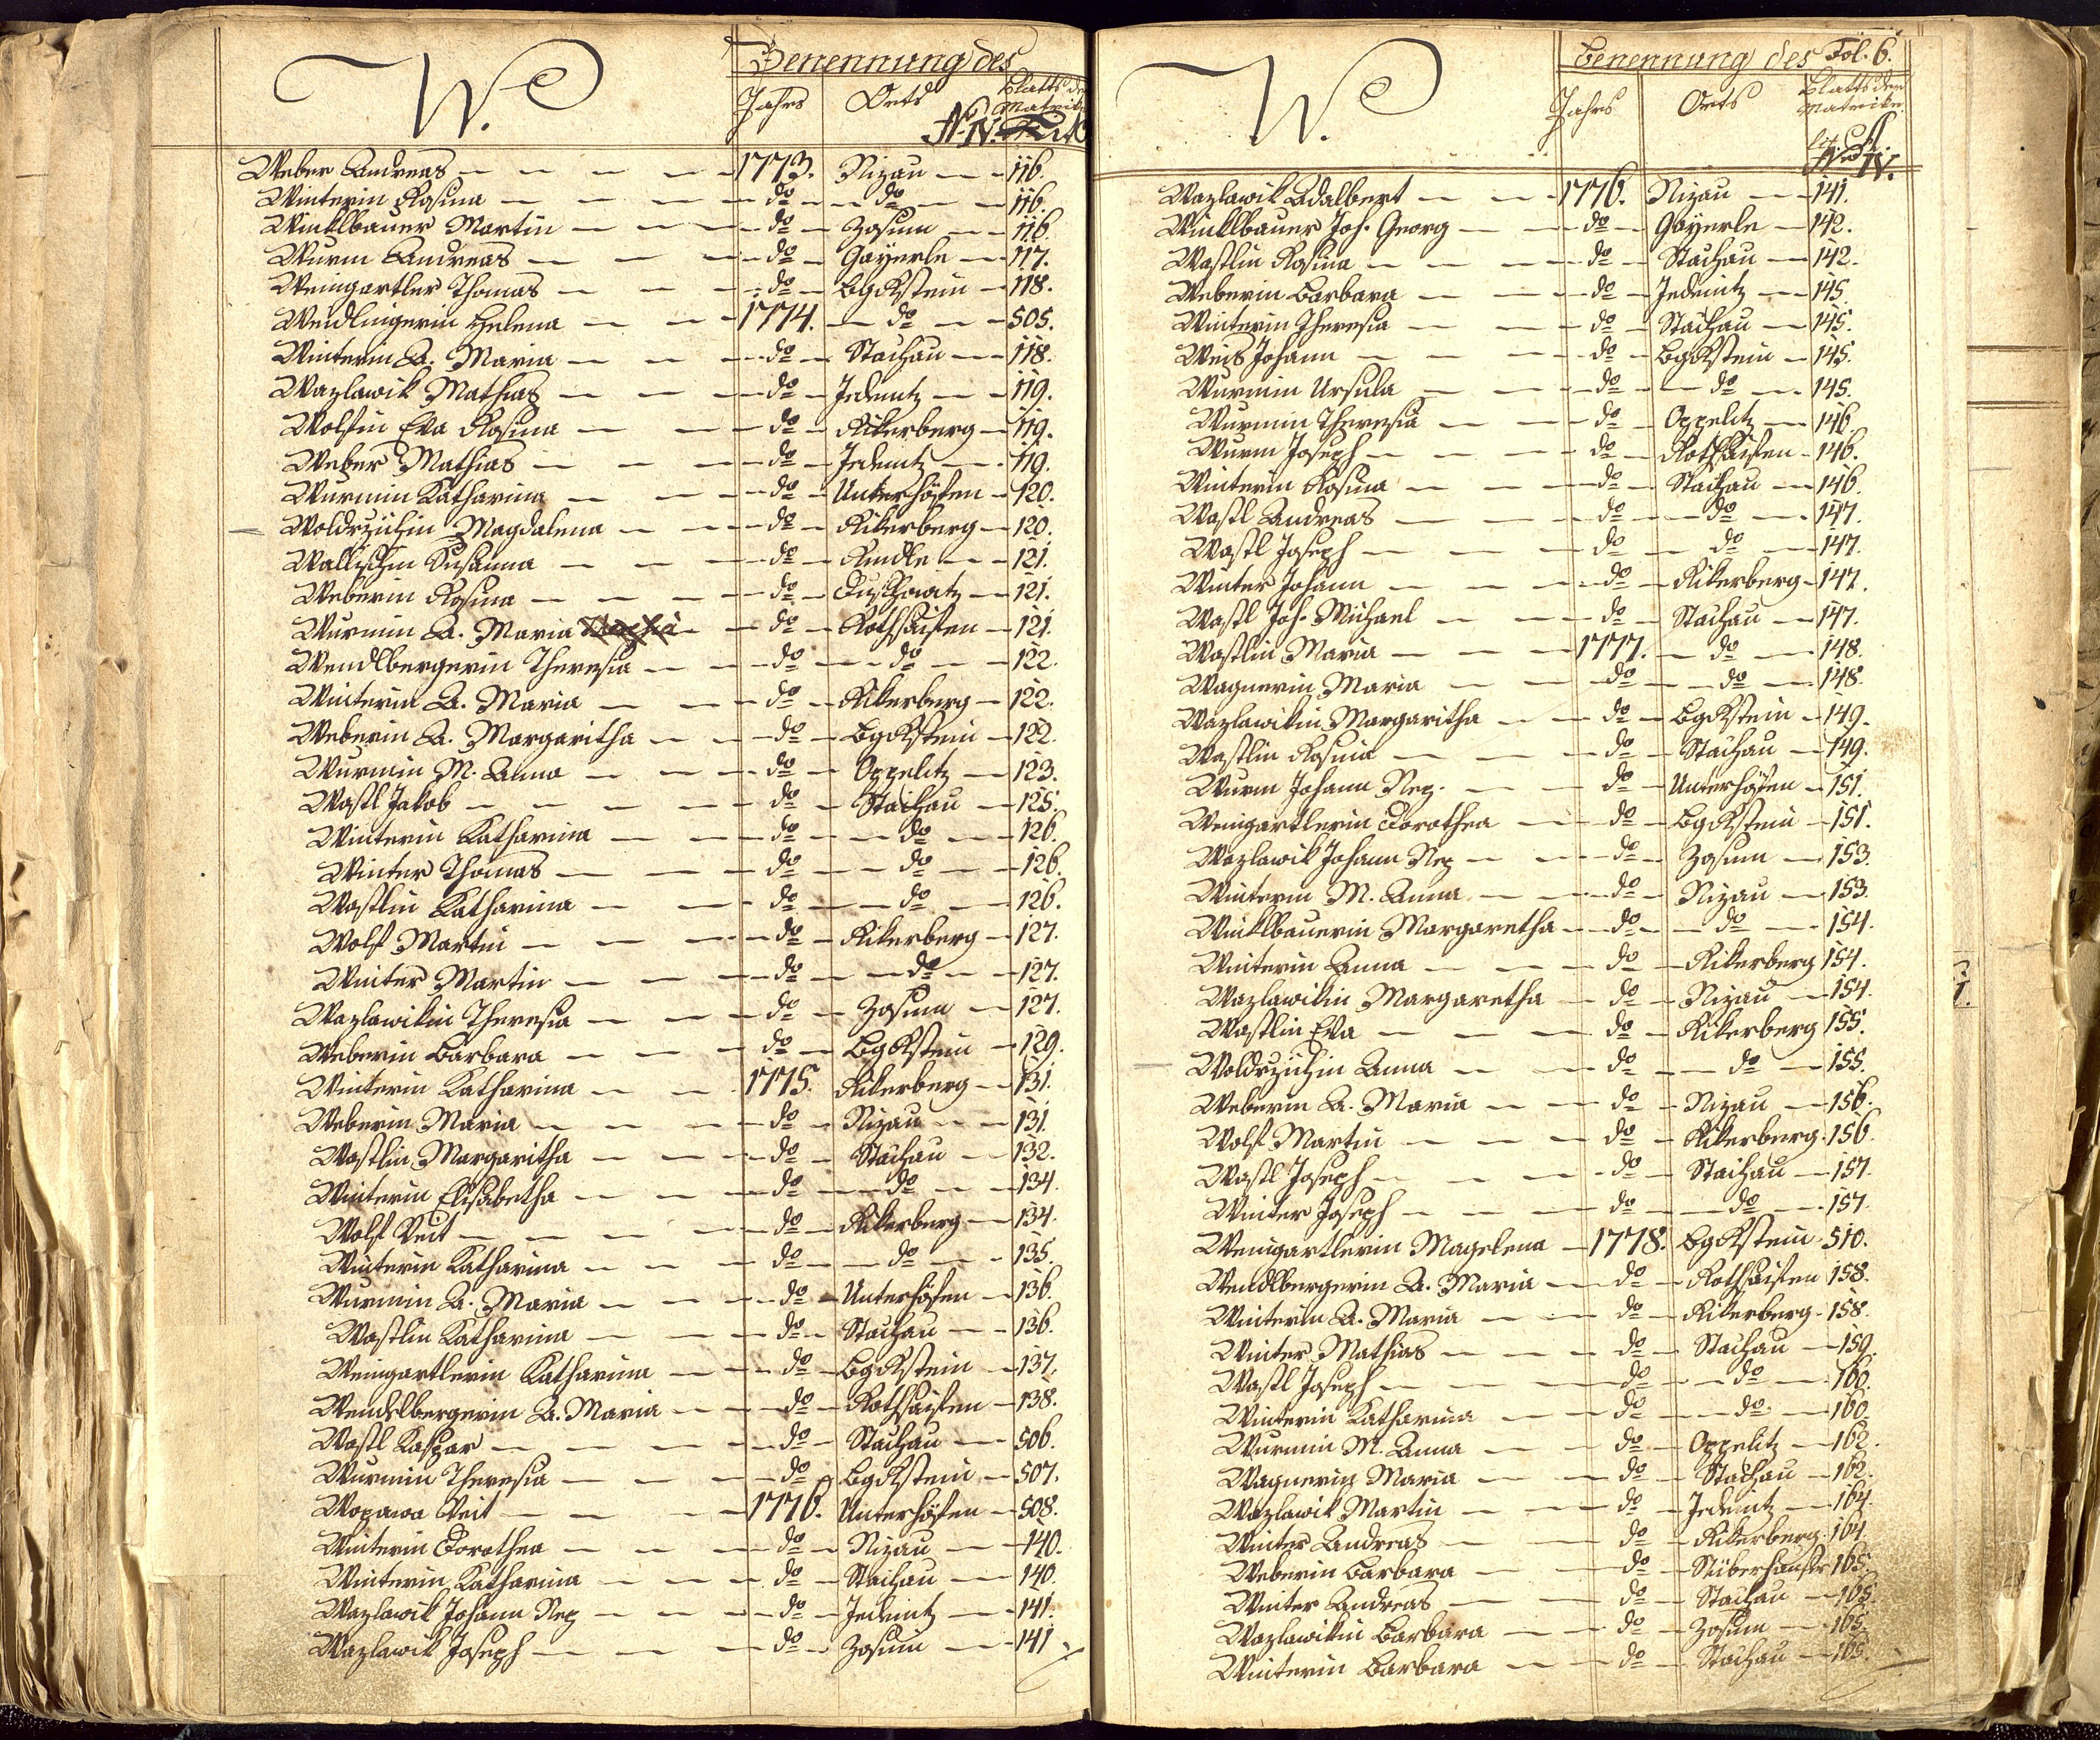 W.
Benennung des
Jahrs Orts Blatts der Matrike
N. IV.
Weber Andreas — 1773. — Nizau — 116.
Winterin Rosina — do — do — 116.
Winklbauer Martin — do — Zosum — 116.
Wurm Andreas — do — Gayerle — 117.
Weingartler Thomas — do — BgRstein — 118.
Weidlingerin Helena — 1774. — do — 505.
Winterin A. Maria — do — Stachau — 118.
Wazlawik Mathias — do — Jedeuitz — 119.
Wolfin Eva Rosina — do — Rikerberg — 119.
Weber Mathias — do — Jedeuitz — 119.
Wurmin Katharina — do — Unterhöfen — 120.
Woldrzichin Magdalena — do — Rikerberg — 120.
Wallischin Susanna — do — Rindle — 121.
Weberin Rosina — do — Duschowitz — 121.
Wurmin A. Maria — do — Rothsaifen — 121.
Wendlbergerin Theresia — do — do — 122.
Winterin A. Maria — do — Rikerberg — 122.
Weberin A. Margaritha — do — BgRstein — 122.
Wurmin M. Anna — do — Oppelitz — 123.
Wastl Jakob — do — Stachau — 125.
Winterin Katharina — do — do — 126.
Winter Thomas — do — do — 126.
Wastlin Katharina — do — do — 126.
Wolf Martin — do — Rikerberg — 127.
Winter Martin — do — do — 127.
Wazlawikin Theresia — do — Zosum — 127.
Weberin Barbara — do — BgRstein — 129.
Winterin Katharina — 1775. Rikerberg — 131.
Weberin Maria — do — Nizau — 131.
Wastlin Margaritha — do — Stachau — 132.
Winterin Elisabetha — do — do — 134.
Wolf Veit — do — Rikerberg — 134.
Winterin Katharina — do — do — 135.
Wurmin A. Maria — do — Unterhöfen — 136.
Wastlin Katharina — do — Stachau — 136.
Weingartlerin Katharina — do — BgRstein — 137.
Wendlbergerin A. Maria — do — Rothsaifen — 138.
Wastl Kaspar — do — Stachau — 506.
Wurmin Theresia — do — BgRstein — 507.
Wopawa Veit — 1776. Unterhöfen — 508.
Winterin Dorothea — do — Nizau — 140.
Winterin Katharina — do — Stachau — 140.
Wazlawik Johann Nep — do — Jedeuitz — 141.
Wazlawik Joseph — do — Zosum — 141
W.
Benennung des Fol. 6.
Jahrs Orts Blatts der Matrike
N. IV.
Wazlawik Adalbert — 1776. Nizau — 141.
Winklbauer Joh. Georg — do — Gayerle — 142.
Wastlin Rosina — do — Stachau — 142.
Weberin Barbara — do — Jedeuitz — 145.
Winterin Theresia — do — Stachau — 145.
Weis Johann — do — BgRstein — 145.
Wurmin Ursula — do — do — 145.
Wurmin Theresia — do — Oppelitz — 146.
Wurm Joseph — do — Rothsaifen — 146.
Winterin Rosina — do — Stachau — 146.
Wastl Andreas — do — do — 147.
Wastl Joseph — do — do — 147.
Winter Johann — do — Rikerberg — 147.
Wastl Joh. Michael — do — Stachau — 147.
Wastlin Maria — 1777. — do — 148.
Wagnerin Maria — do — do — 148.
Wazlawikin Margaritha — do — BgRstein — 149.
Wastlin Rosina — do — Stachau — 149.
Wurm Johann Nep. — do — Unterhöfen — 151.
Weingartlerin Dorothea — do — BgRstein — 151.
Wazlawik Johann Nep — do — Zosum — 153.
Winterin M. Anna — do — Nizau — 153.
Winklbauerin Margaretha — do — do — 154.
Winterin Anna — do — Rikerberg 154.
Wazlawikin Margaretha — do — Nizau — 154.
Wastlin Eva — do — Rikerberg 155.
Woldrzichin Anna — do — do — 155.
Weberin A. Maria — do — Nizau — 156.
Wolf Martin — do — Rikerberg. 156.
Wastl Joseph — do — Stachau — 157.
Winter Joseph — do — do — 157.
Weingartlerin Magelena — 1778. BgRstein. 510.
Wendlbergerin A. Maria — do — Rothsaifen 158.
Winterin A. Maria — do — Rikerberg. 158.
Winter Mathias — do — Stachau — 159.
Wastl Joseph — do — do — 160.
Winterin Katharina — do — do. — 160.
Wurmin M. Anna — do — Oppelitz — 162.
Wagnerin Maria — do — Stachau — 162.
Wazlawik Martin — do — Jedeuitz — 164.
Winter Andreas — do — Rikerberg. 164.
Weberin Barbara — do — 165.
Winter Andreas — do — Stachau — 165.
Wazlawikin Barbara — do — Zosum — 165.
Winterin Barbara — do — Stachau — 165.